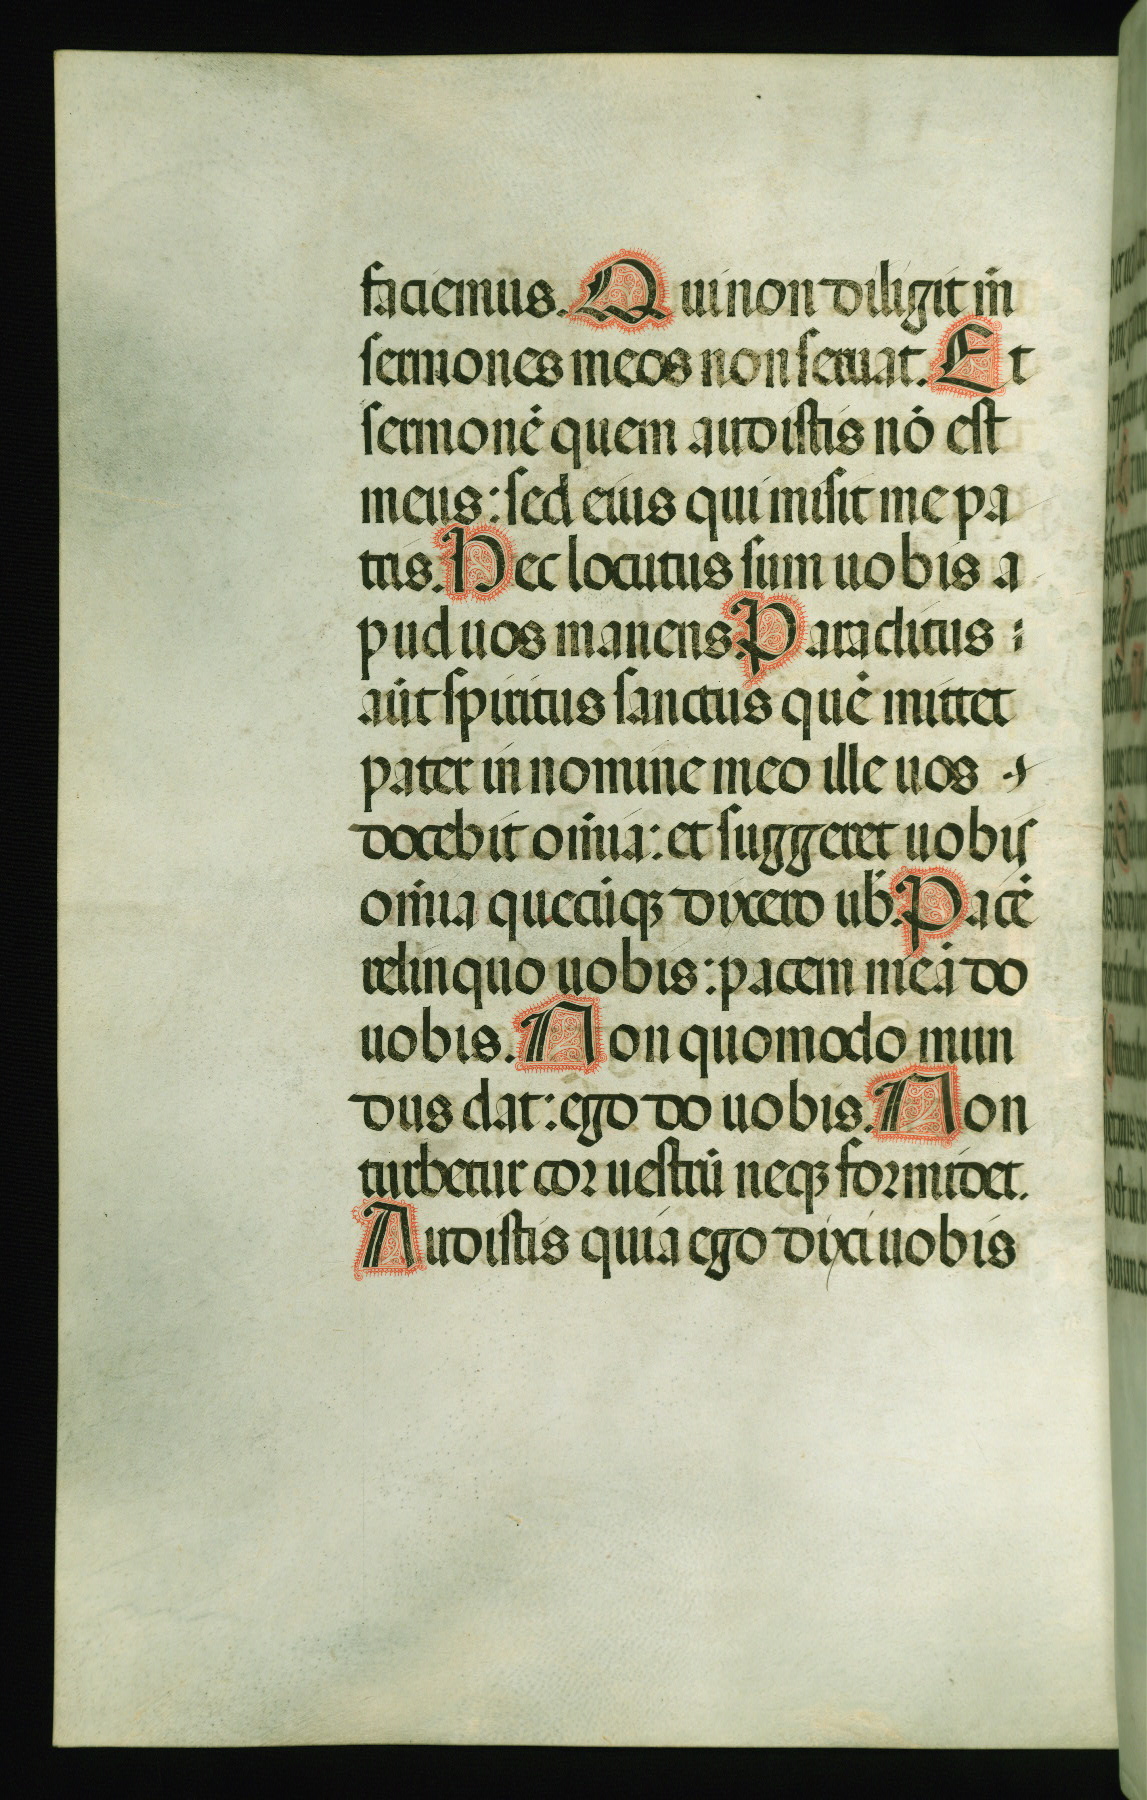 faciemus. Qui non diligit m̄
sermones meos non seruat. Et
sermonē quem audistis nō est
meus: sed eius qui misit me pa
tris. Hec locutus sum uobis a
pud uos manens. Paraclitus
aūt spiritus sanctus quē mittet
pater in nomine meo ille uos
docebit om̄ia: et suggeret uobis
om̄ia quecūqꝫ dixero ub̄. Pacē
relinquo uobis: pacem meā do
uobis. Non quomodo mun
dus dat: ego do uobis. Non
turbetur cor uestrū neqꝫ formidet.
Audistis quia ego dixi uobis